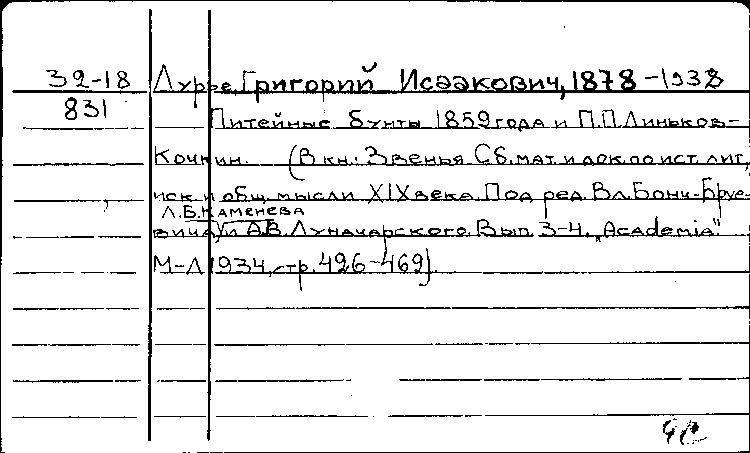 32-18 Лурье, Григорий Исаакович, 1878-1938
831
Питейные бунты 1859 года и П.П. Линьков-
Кочкин. (В кн.: Звенья Сб. мат. и док. по ист. лит.,
иск. и общ. мысли XIX века. Под ред. Вл. Бонч-Бруе-
Л.Б. Каменева
вича, и А.В. Луначарского. Вып. 3-4. „Academia"
М-Л 1934, стр. 426-469).